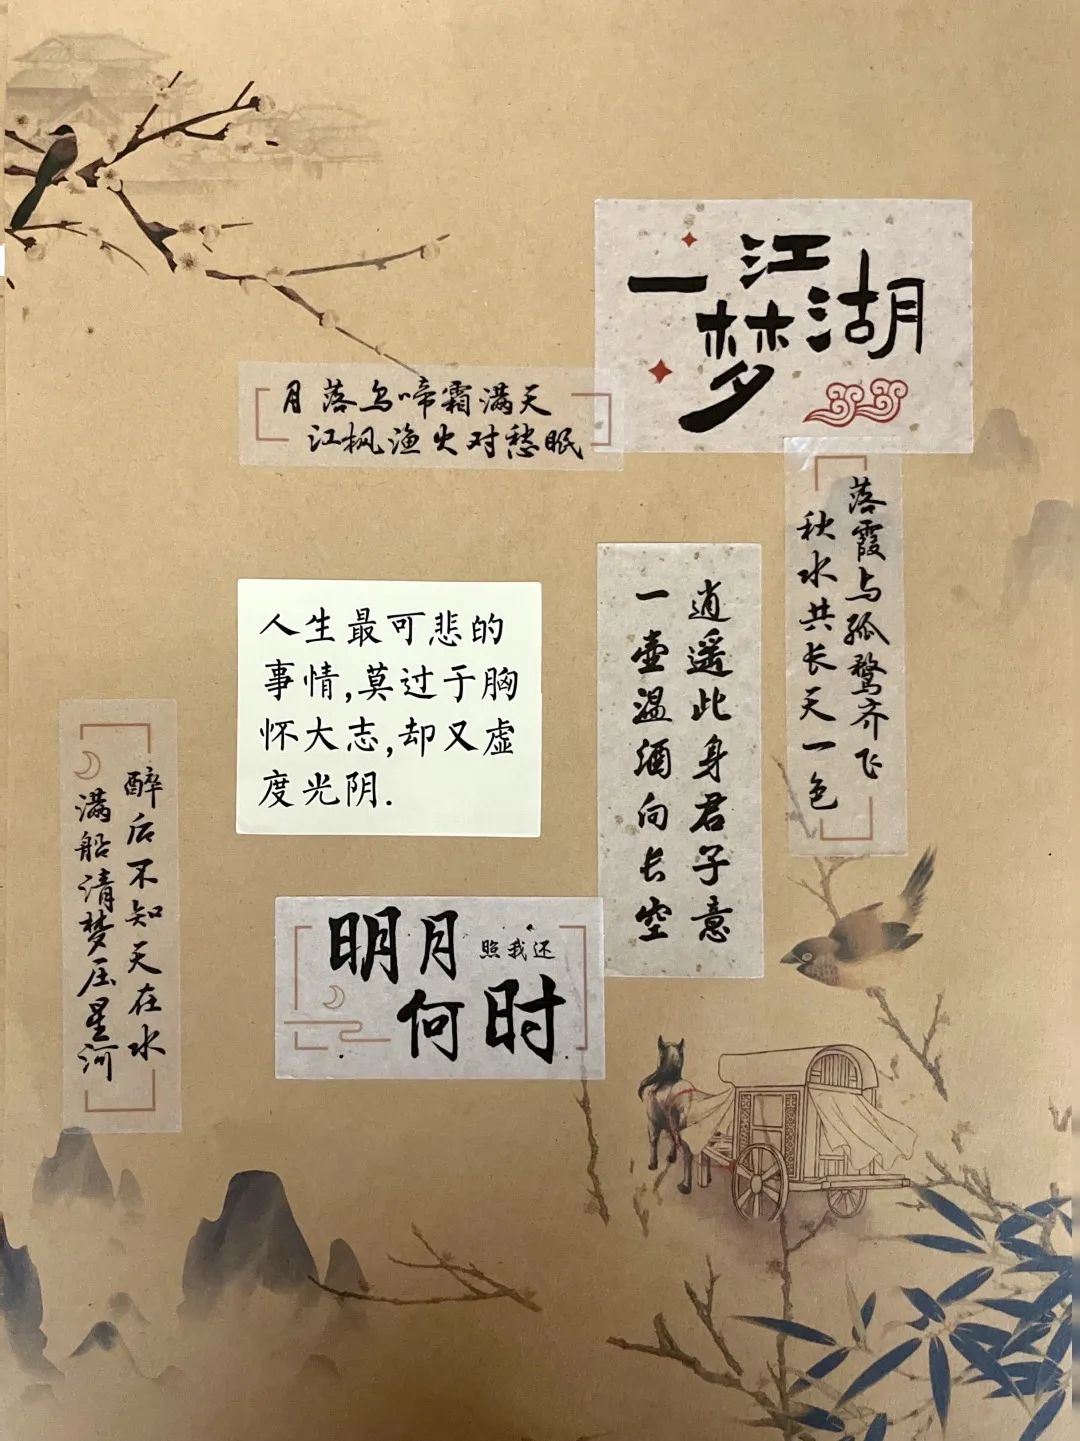 一梦江湖
月落乌啼霜满天
江枫渔火对愁眠
落霞与孤鹜齐飞
秋水共长天一色
逍遥此身君子意
一壶温酒向长空
人生最可悲的
事情,莫过于胸
怀大志,却又虚
度光阴.
醉后不知天在水
满船清梦压星河
明月照我还
何时